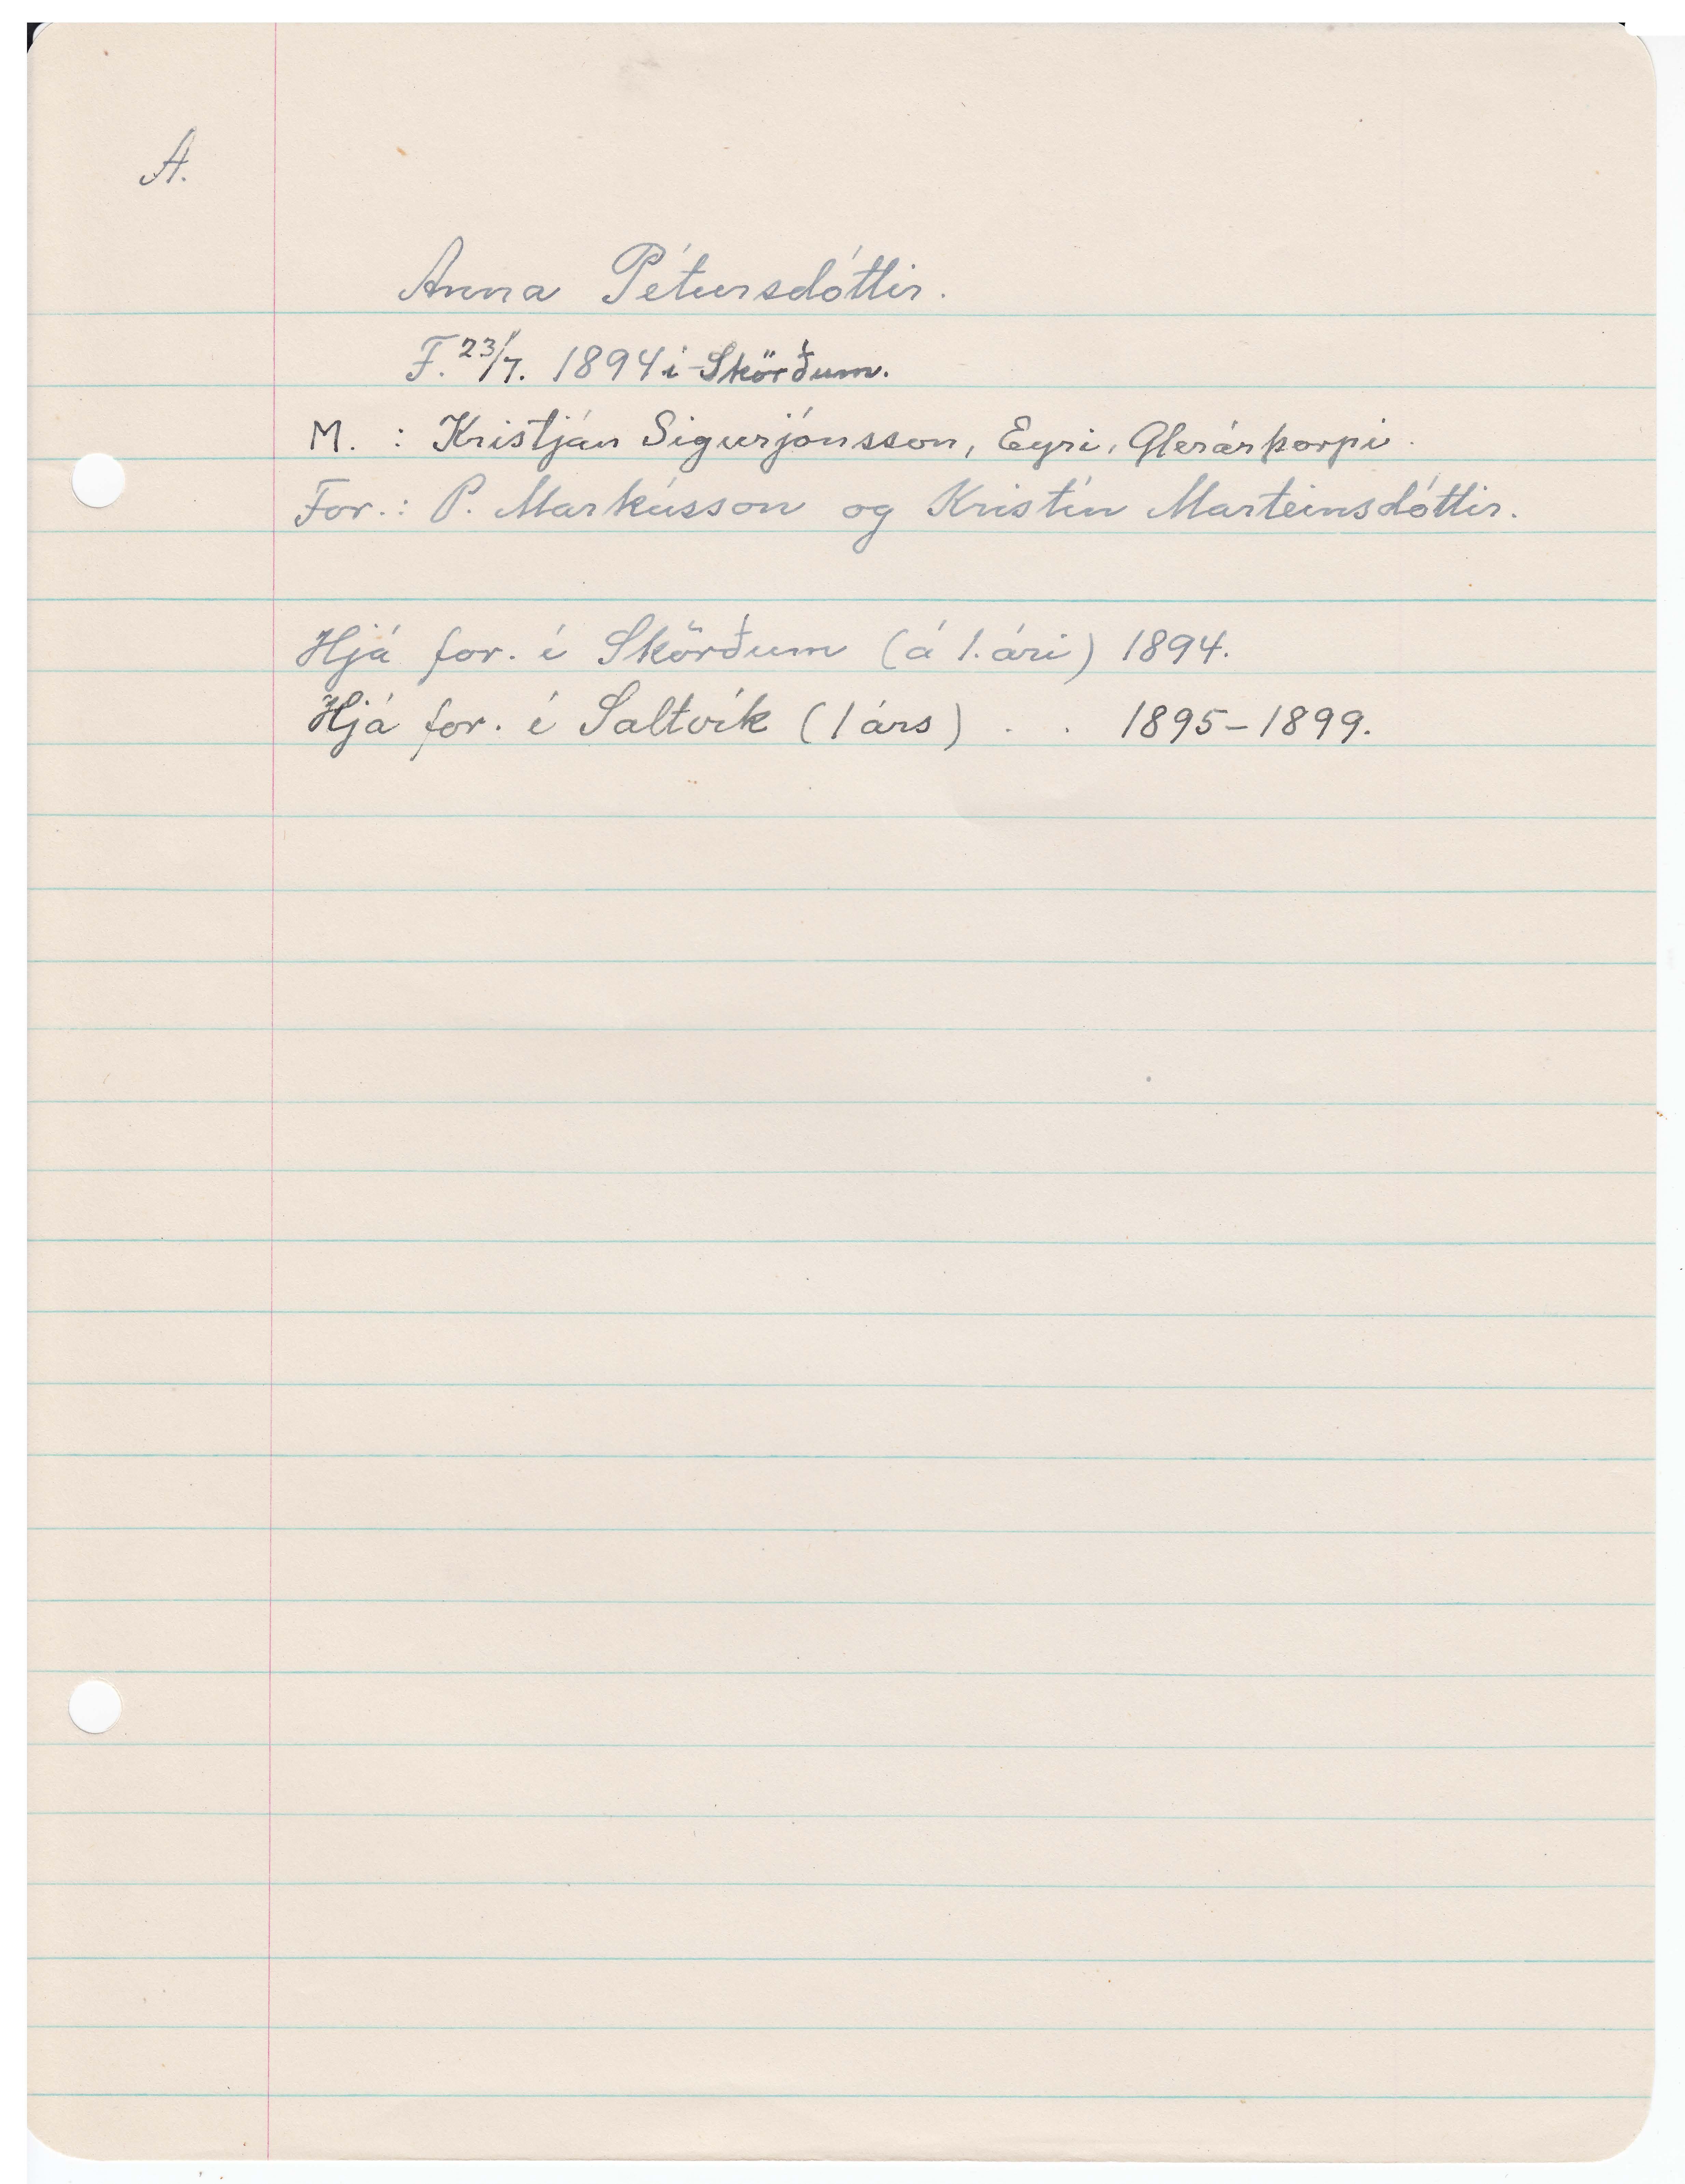 A.
Anna Pétursdóttir.
F. 23/7. 1894 í Skörðum.
M. : Kristján Sigurjónsson, Eyri, Glerárþorpi.
For.: P. Markússon og Kristín Marteinsdóttir.
Hjá for. í Skörðum (á 1. ári) 1894.
Hjá for. í Saltvík (1 árs) . . 1895-1899.